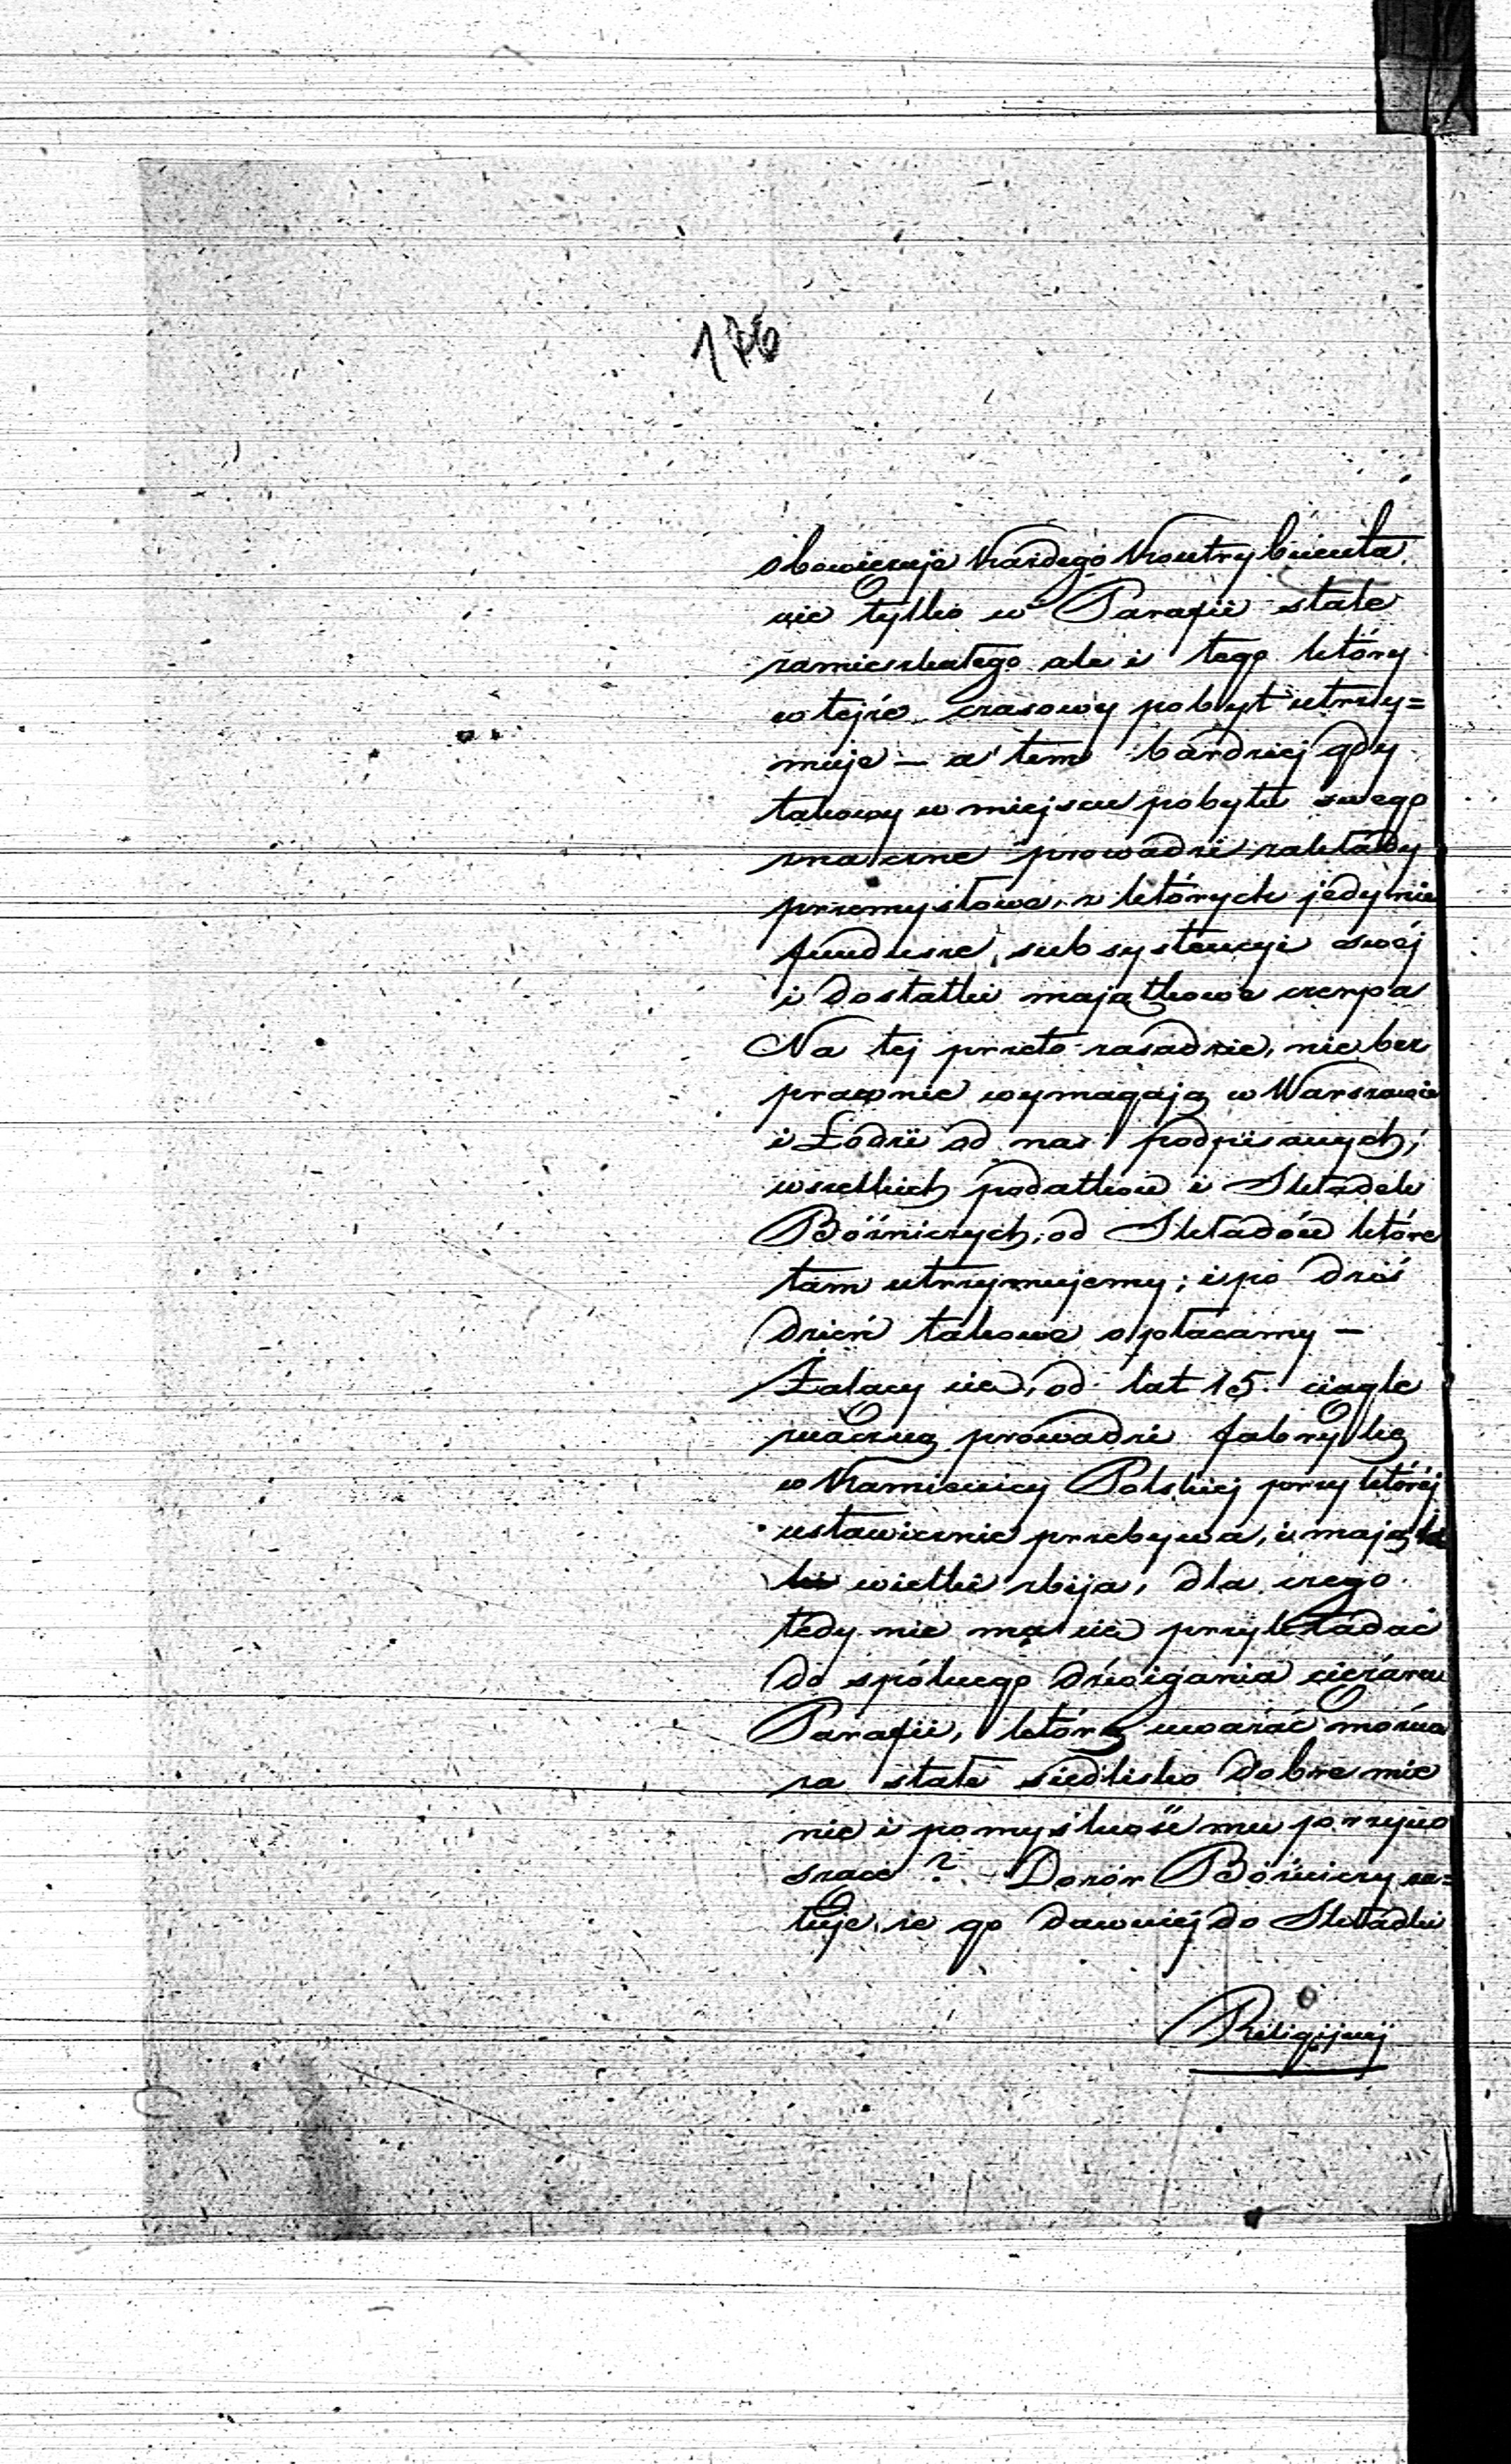 176
obowiezuje Kazdego Kontrybuenta
nie tylko w Parafii stale
zamieszkałego ale i tego który
w tejże czasowy pobyt utrzy=
muje — a tem bardziej gdy
takowy w miejscu pobytu swego
znaczne prowadzi zakłady
przemysłowe, z których jedynie
fundusze, subsystencyi swéj
i dostatki majątkowe czerpa
Na tej przeto zasadzie, nie bez
prawnie wymagają w Warszawie
i Łodzi od nas podpisanych,
wszelkich podatków i Składek
Bóźniczych, od Składów które
tam utrzymujemy; i po dziś
dzień takowe opłacamy —
Żalący sie, od lat 15. ciągle
znaczną prowadzi fabrykę
w Kamienicy Polskiej przy któréj
ustawicznie przebywa, i mająt
ki wielki zbija, dla czego
tedy nie ma sie przykładać
do spólnego dźwigania ciężaru
Parafii, którą uważać można
za stałe siedlisko dobre mie
nie i pomyślność mu przyno
szące? Dozór Bóżniczy ra=
tuje, ze go dawniej do Składki
Religijnéj